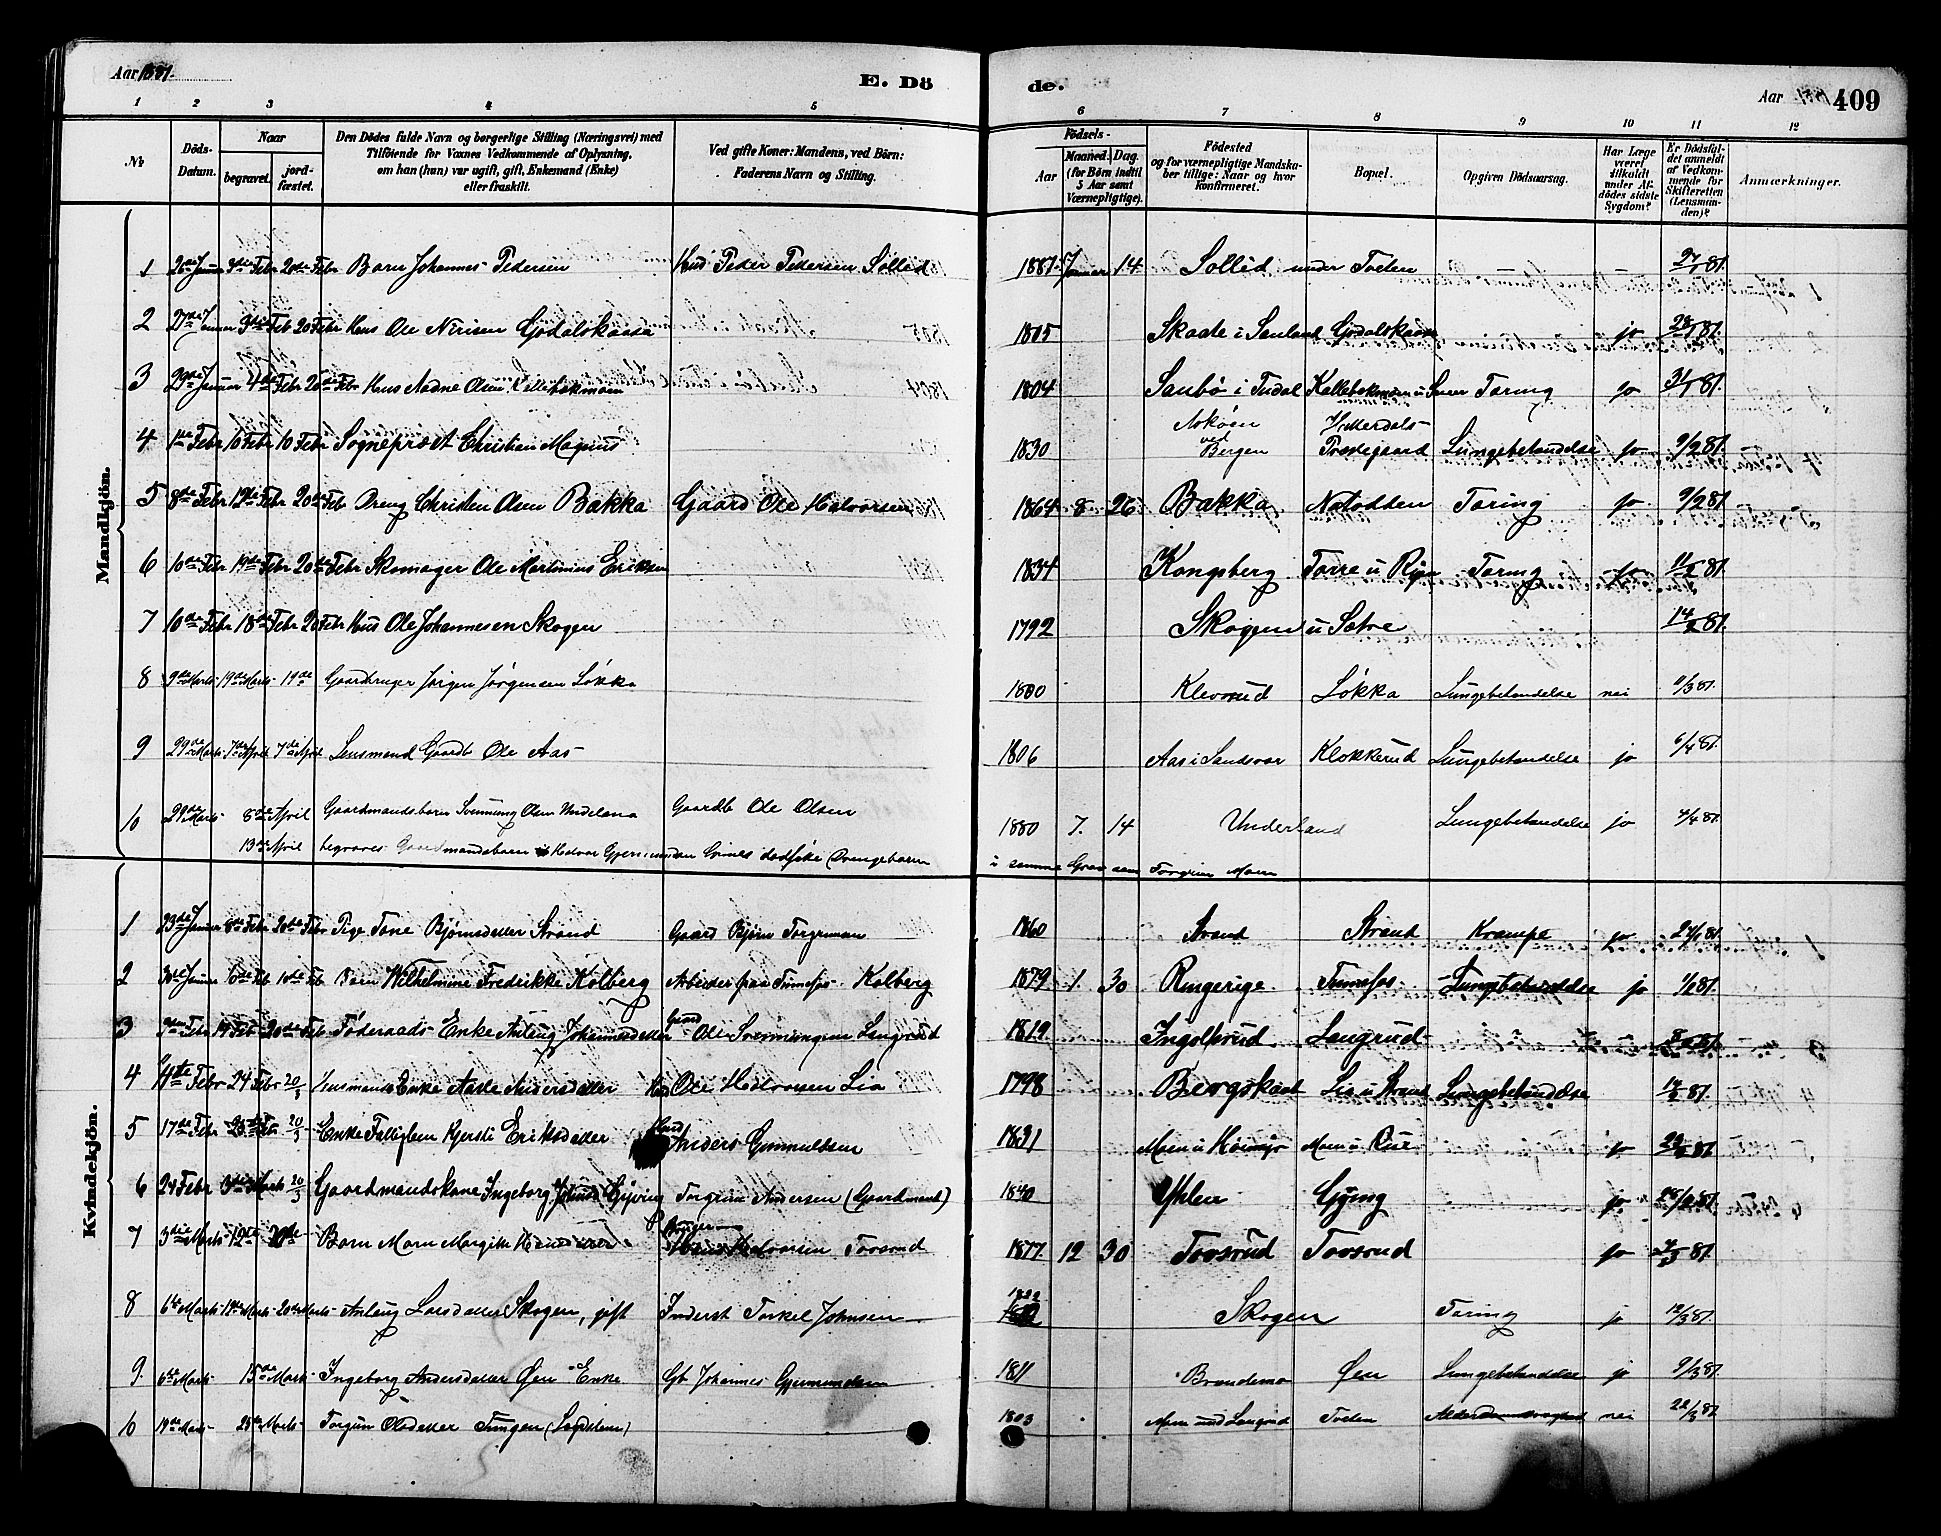 Aar 1881.
E. Döde.
Aar 1881. 409
1 2 3 4 5 6 7 8 9 10 11 12
No
Döds-Datum.
Naar begravet. jordfæstet.
Den Dödes fulde Navn og borgerlige Stilling (Næringsvei) med Tilföiende for Voxnes Vedkommende af Oplysning, om han (hun) var ugift, gift, Enkemand (Enke) eller fraskilt.
Ved gifte Koner: Mandens, ved Börn: Faderens Navn og Stilling.
Födsels- Aar Maaned. Dag. (for Börn indtil 5 Aar samt Værnepligtige).
Födested og for værnepligtige Mandskaber tillige: Naar og hvor konfirmeret.
Bopæl.
Opgiven Dödsaarsag.
Har Læge været tilkaldt under Afdödes sidste Sygdom?
Er Dödsfaldet anmeldt af Vedkommende for Skifteretten (Lensmanden)?
Anmærkninger.
Mandkjön.
1 26de Januar 3die Febr 20de Febr Barn Johannes Pedersen Hus Peder Pedersen Sollid 1881 Januar 14 Sollid under Tveten 27/1 81.
2 27de Januar 9de Feb 20 Febr Hus Ole Nirisen Godalskaasa 1805 Skaate i Sauland Godalskaasa jo 28/1 81.
3 29de Januar 4de Febr 20de Febr Hus Aadne Olsen Kallebekmoen 1804 Saubö i Tudal Kallebekmoen u Semer Tæring jo 31/1 81.
4 1ste Febr 10 Febr 10 Febr Sognepræst Christian Magnus 1830 Askøen ved Bergen Hitterdals Prestegaard Lungebetændelse jo 9/2 81.
5 8de Febr 19de Febr 20de Feb Dreng Christen Olsen Bakka Gaard Ole Halvorsen 1864 8 26 Bakka Notodden Tæring jo 9/2 81.
6 10de Febr 19de Febr 20de Febr Skomager Ole Martinius Eriksen 1834 Kongsberg Tørre u Ryen Tæring jo 11/2 81.
7 10de Febr 18de Febr 20 Febr Hus Ole Johannesen Skogen 1792 Skogen u Sætre 14/2 81.
8 9de Marts 19de Marts 19de Gaardbruger Jørgen Jørgensen Løkka 1880 Klevrud Løkka Lungebetændelse nei 11/3 81.
9 29de Marts 7de April 7de April Lensmand Gaardb Ole Aas 1806 Aas i Sandsvær Klokkerud Lungebetændelse jo 6/4 81.
10 29de Marts 8de April Gaardmandsbarn Svennung Olsen Underland Gaardb Ole Olsen 1880 7. 14 Underland Lungebetændelse jo 4/4 81.
13de April begraves Gaardmandsbarn Halvor Gjermundsen Grines dødføde Drengebarn i samme Grav som Torgrim Moen
Kvindekjön.
1 23de Januar 8de Febr 20de Febr Pige Tone Bjørnsdatter Strand Gaard Bjørn Torgrimsen 1860 Strand Strand Krampe jo 24/1 81.
2 30de Januar 6de Feb 10de Feb Barn Wilhelmine Fredrikke Kolberg Arbeider paa Tinnefos Kolberg 1879 1. 30 Ringerige Tinnefos Lungebetændelse jo 1/2 81.
3 7de Febr 19 Feb 20de Feb Føderaads Enke Aslaug Johannesdatter Gaard Ole Svennungsen Langrud 1819 Ingolfsrud Langrud 8/2 81.
4 11te Febr 24 Febr 20/3 Husmands Enke Aaste Andersdatter Hus Ole Halvorsen Lia 1798 Bergskaas Lia u Strand Lungebetændelse 14/2 81.
5 17de Febr 25de Feb 20/3 Enke Fattiglem Kjersti Eriksdatter Hus Anders Gunnulfsen 1831 Moen u Haimyr Moen u Rue jo 22/2 81
6 24 Febr 3die Marts 20/3 Gaardmandskone Ingeborg Johnsd Gjøing Torgrim Andersen (Gaardmand) 1840 Yhlen Gjøing jo 28/2 81.
7 3die Marts 12te 20de Barn Maren Margit Hansdatter Bruger Hans Halvorsen Tovsrud 1877 12 30 Tovsrud Tovsrud jo 7/3 81.
8 6te Marts 19de Marts 20de Marts Aslaug Larsdatter Skogen, gift Inderst Torkel Johnsen 1822 Skogen Tæring jo 12/3 81.
9. 6te Marts 15de Marts Ingeborg Andersdatter Øen Enke Gb Johannes Gjermundsen 1811 Brændemo Øen Lungebetændelse jo 9/3 81.
10 19de Marts 25de Marts Torgun Olsdatter Tungen (Lægdslem) 1803 Moen und Langrud Tveten Alderdomssvaghed nei 22/3 81